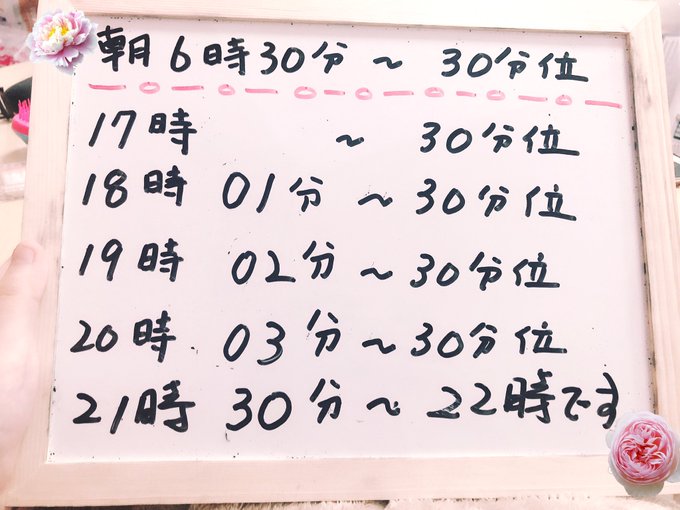 朝6時30分～30分位
17時～30分位
18時01分～30分位
19時02分～30分位
20時03分～30分位
21時30分～22時です